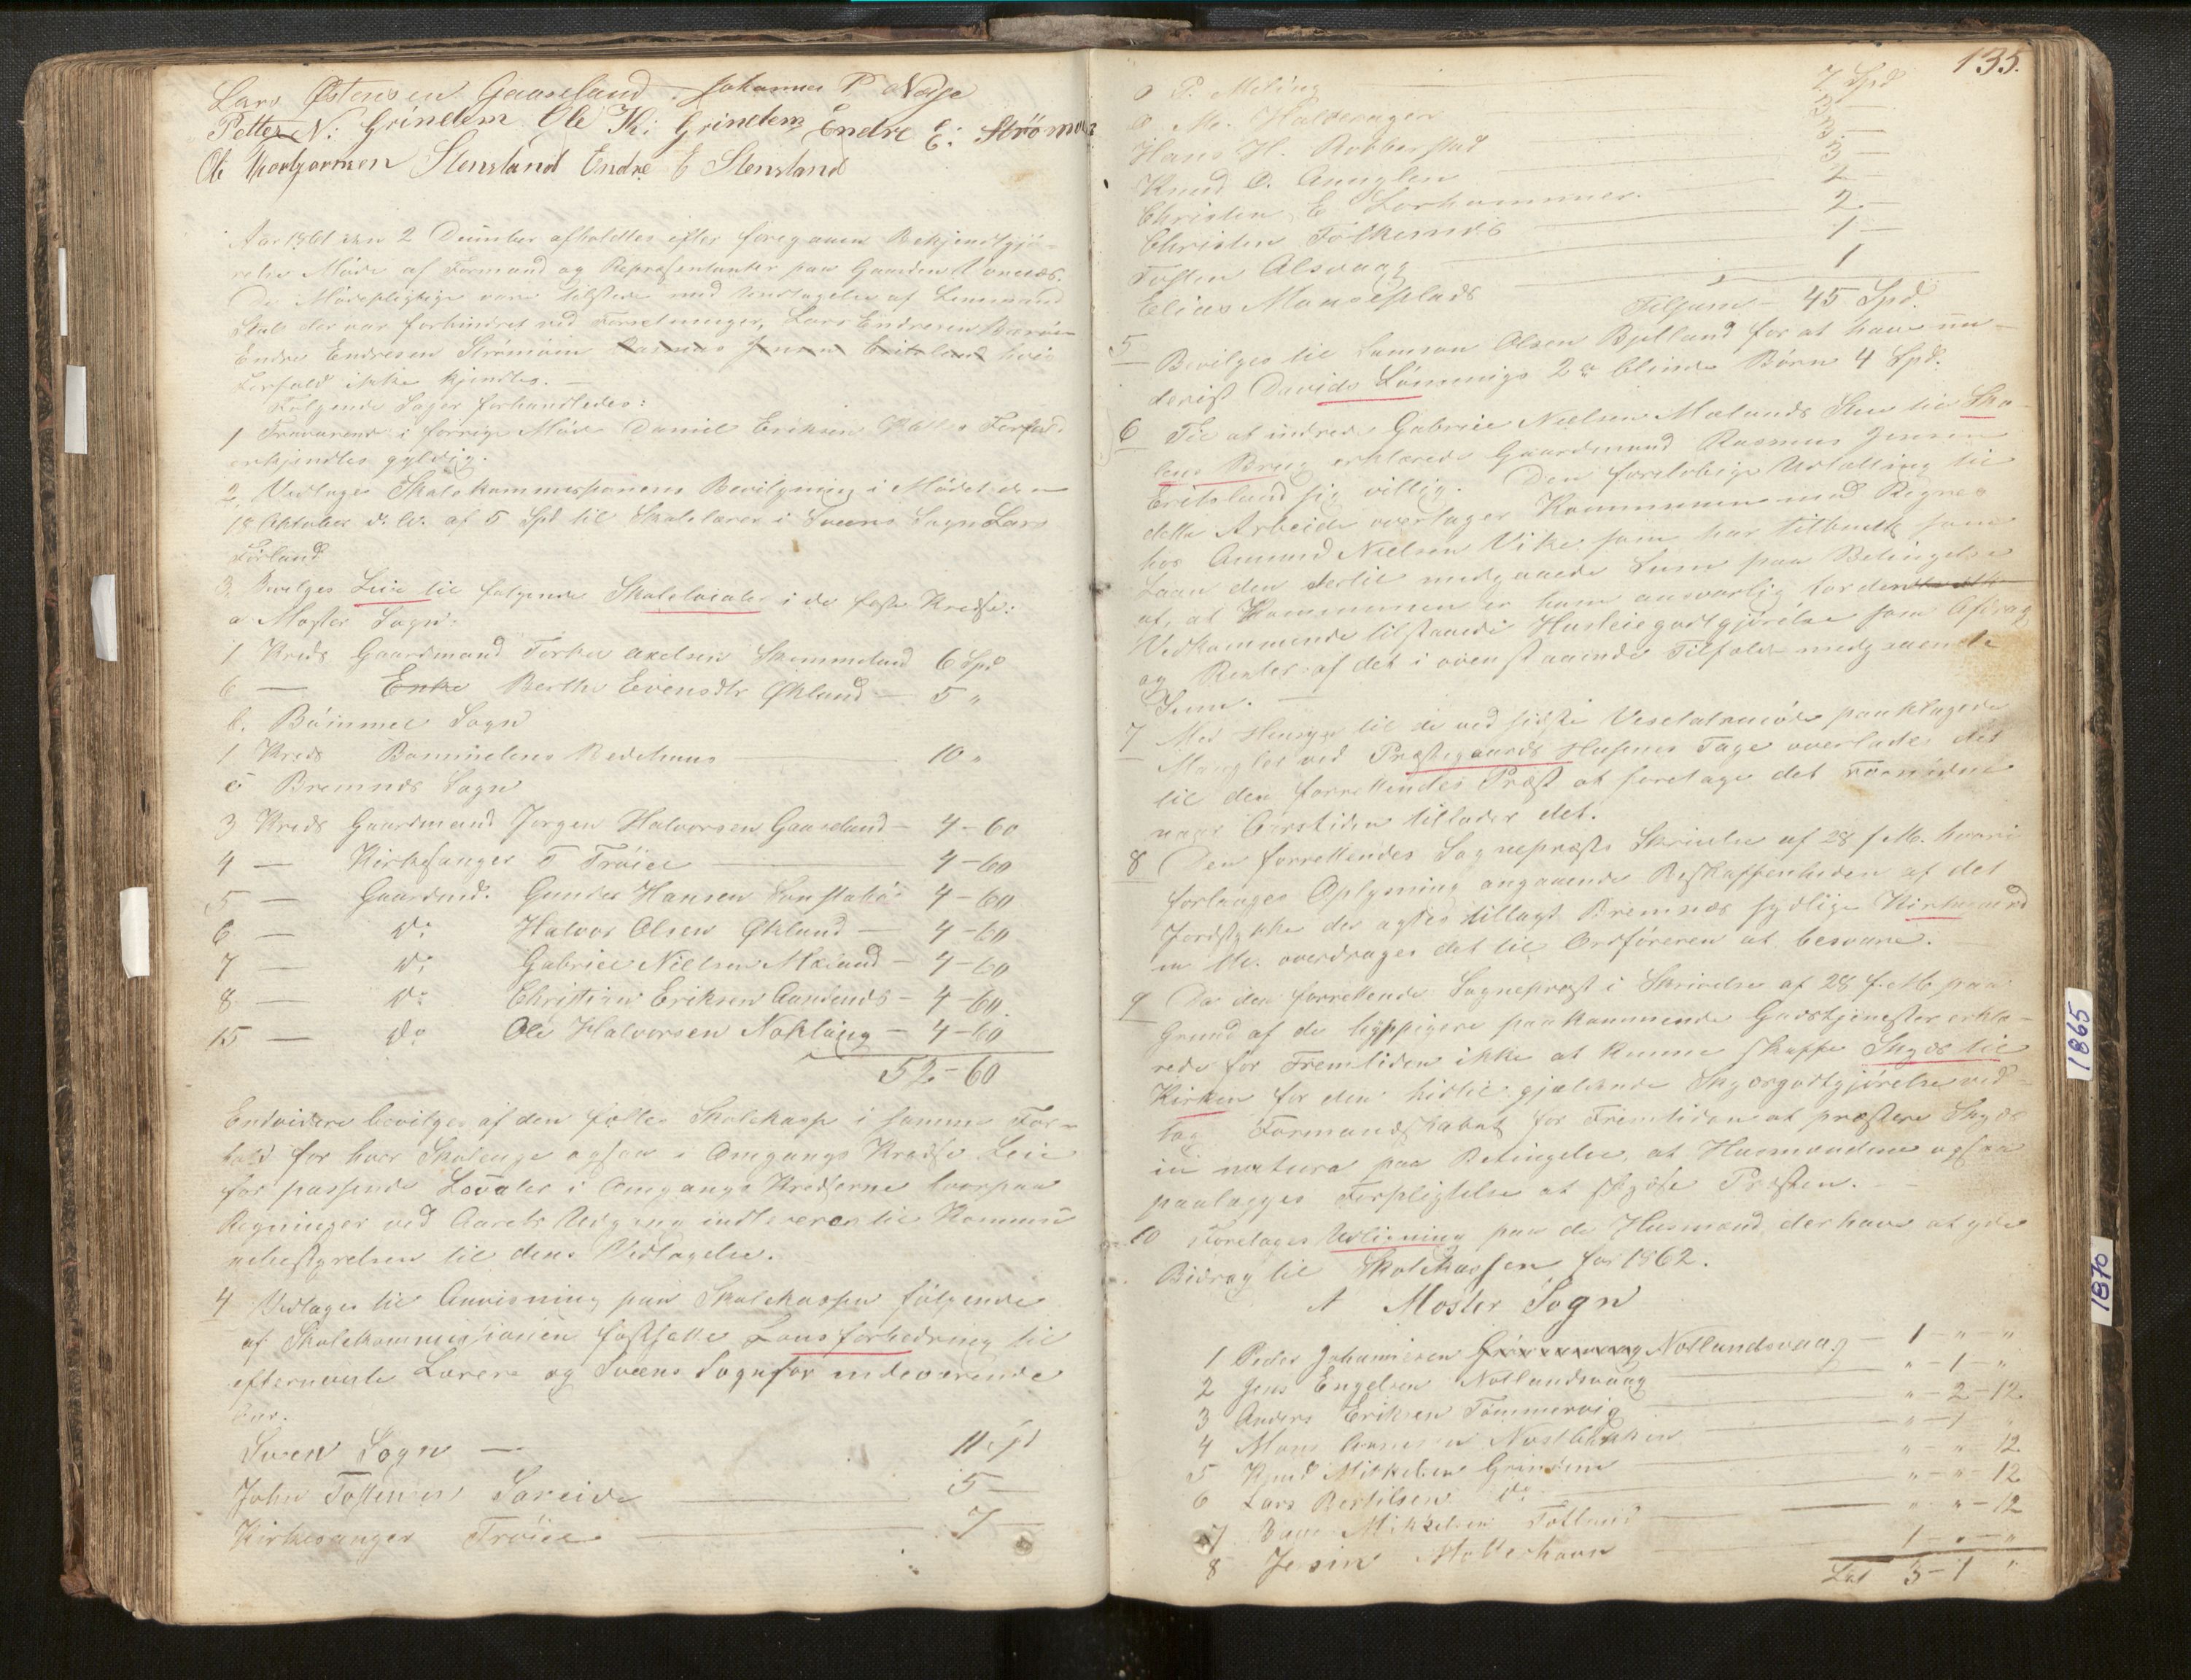 Lars Østensen Gaaseland. Johannes P Næse
Petter N: Grindem Ole K: Grindem Endre E: Strømøen
Ole Thorbjørnsen Stensland Endre E Stensland
Aar 1861 den 2 December afholdtes efter foregaaen Bekjendtgjø-
relse Møde af Formænd og Repræsentanter paa Gaarden Vorenæs.
De Mødepligtige vare tilstede med Undtagelse af Lensmand
der var forhindret ved Forretninger, Lars Endresen Barøen
Endre Endresen Strømøen Rasmus Jensen Eritsland hvis
Forfald ikke kjendtes. —
Følgende Sager forhandledes:
1 Fraværende i forrige Møde Daniel Eriksen Forfald
erkjendtes gyldig.
2 Vedtages Skolekommissionens Bevilgning i Mødet den
18 Oktober d. A. af 5 Spd til Skolelærer i Sveens Sogn Lars
Førland
3. Bevilges Leie til følgende Skolelocaler i de faste Kredse:
a Moster Sogn:
1 Kreds Gaardmand Torkel Axelsen Skimmeland 6 Spd
6 — Enke Berthe Evensdtr Økland — 5 "
b. Bømmel Sogn
1 Kreds Bømmelens Bedehuus 10 "
c Bremnes Sogn
3 Kreds Gaardmand Jørgen Halvorsen Gaaseland — 4-60
4 — Kirkesanger T Trøien — 4-60
5 — Gaardmd. Gunder Hansen 4-60
6 — do Halvor Olsen Økland — 4-60
7 — do Gabriel Nielsen Mæland — 4-60
8 — do Christian Eriksen — 4-60.
15 — do Ole Halvorsen Nokling — 4-60
52-60
Endvidere bevilges af den fælles Skolekasse i samme For-
hold for hver Skoleuge ogsaa i Omgangs Kredse Leie
for passende Locales i Omgangs Kredserne hvorpaa
Regninger ved Aarets Udgang indleveres til Kommu
nebestyrelsen til dens Vedtagelse.
4 Vedtages til Anvisning paa Skolekassen følgende
af Skolekommissionen fastsatte Lønsforbedring til
efternævnte Lærere og Sveens Sogn for indeværende
Aar.
Sveen Sogn — 11 Spd
John Tostensen Sareide — 5 —
Kirkesanger Trøien — 7 —
135.
O P. Meling 7 Spd
O M. Hallerager 3 —
Hans H. Robberstad 3 —
Knud O. 3 —
Christen E Lorhammer 2 —
Christen Folkernes 2. —
Tosten Alsvaag 1 —
Elias Maaseplads 1
Tilsam — 45 Spd.
5 Bevilges til Samson Olsen Bjelland for at have un-
derist Davids Lønnings 2de blinde Børn 4 Spd.
6 Til at indrede Gabriel Nielsen Mælands Stue til Sko-
lens Brug erklærede Gaardmand Rasmus Jensen
Eritsland sig villig. Den foreløbige Udtælling til
dette Arbeide overtager Kommunen med Regne
hos Amund Nielsen Vike som har tilbudt som
Laan den dertil medgaaede Sum paa Betingelse
af, at Kommunen er ham ansvarlig for den
Vedkommende tilstaaede Husleiegodtgjørelse som Afdrag
og Renter af det i ovenstaaende Tilfælde medgaaende
Sum. —
7 Med Hensyn til de ved sidste paaklagede
Mangler ved Præstegaards Husenes Tage overlades det
til den forrettende Præst at foretage det Fornødne
naar Aarstiden tillader det.
8 Den forrettendes Sognepræsts Skrivelse af 28 f. M. hvori
forlanges Oplysning angaaende Beskaffenheden af det
Jordstykke der agtes tillagt Bremnes sydlige Kirkegaard
m M. overdrages det til Ordføreren at besvare. —
9 Da den forrettende Sognepræst i Skrivelse af 28 f. M. paa
Grund af de hyppigere paakommende Gudstjenester erklæ-
rede for Fremtiden ikke at kunne skaffe Skyds til
Kirken for den hidtil gjældende Skydsgodtgjørelse ved-
tog Formandskabet for Fremtiden at præstere Skyds
in natura paa Betingelse, at Husmændene ogsaa
paalægges Forpligtelse at skydse Præsten. —
10 Foretages Udligning paa de Husmænd der have at yde
Bidrag til Skolekassen for 1862.
A Moster Sogn
1 Peder Johannesen Notlandsvaag — 1 - " - "
2 Jens Engelsen Notlandsvaag " - 1 - "
3 Anders Eriksen Tømmervig " - 2 - 12
4 Mons Nostbakken " - 1 "
5 Knud Mikkelsen Grindem " - " - 12
6 Lars Bertilsen do " - " - 12
7 Mikkelsen Totland " - " - 12
8 Jesin Mosterhavn 1 - " - "
Lat 3 - 1 "
1865
1870